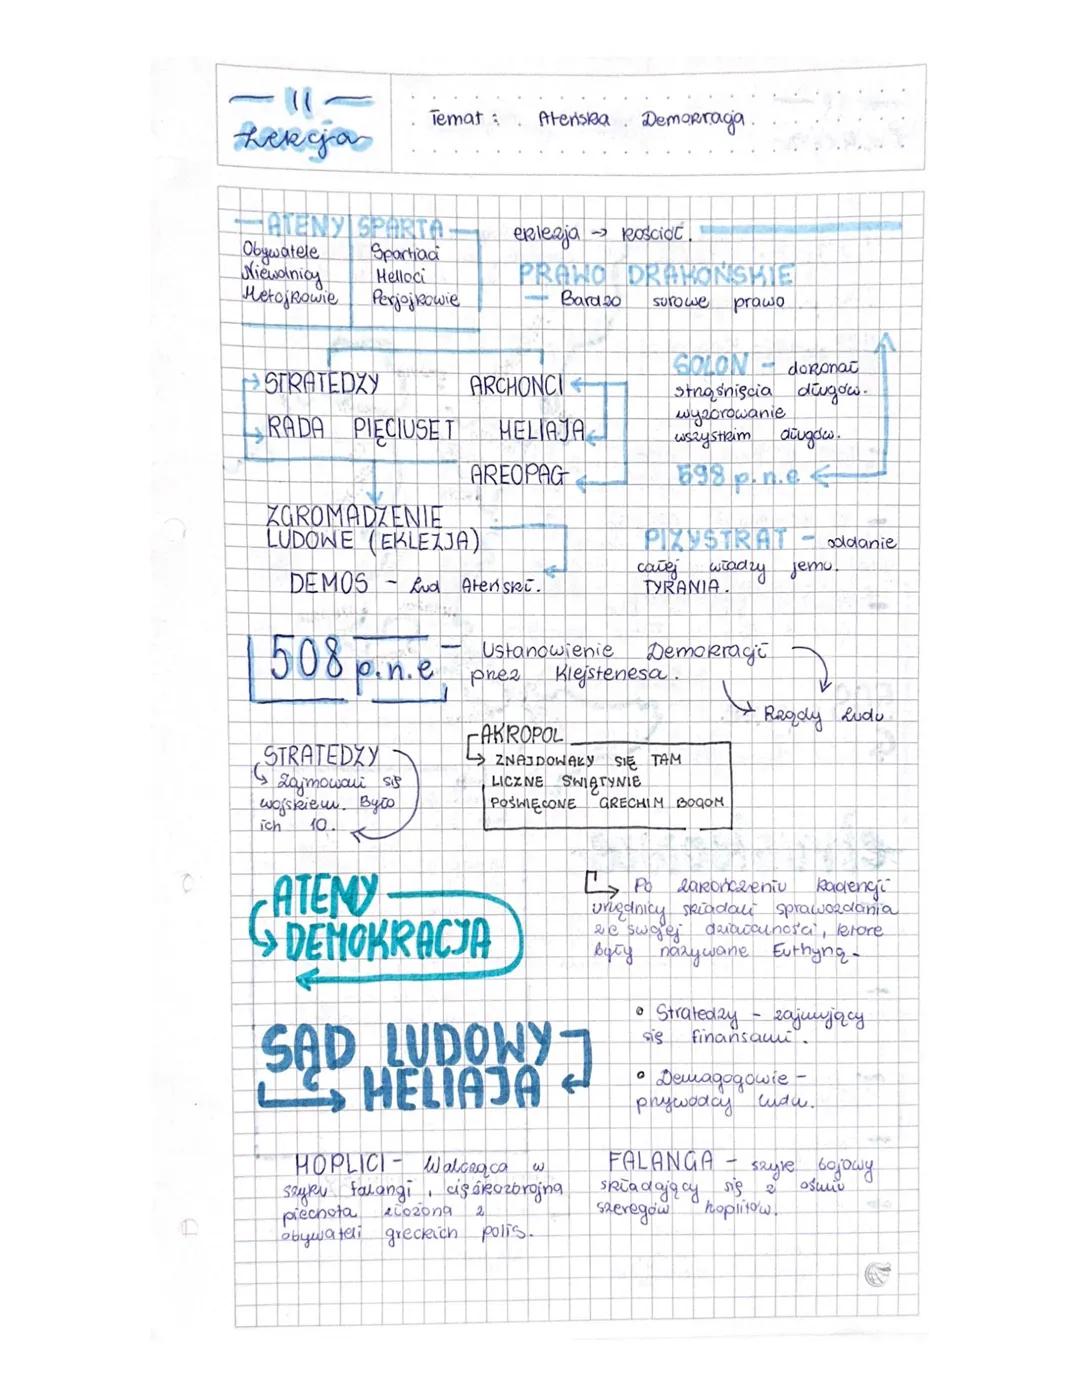 11
Lekcja
Temat: Ateńska Demokracja.
ATENY SPARTA
Obywatele Spartiaci
Niewolnicy Helloci
Metojkowie Perjojkowie
eklezja → kościół.
PRAWO DRAKOŃSKIE
— Bardzo surowe prawo
STRATEDZY ARCHONCI
RADA PIĘCIUSET HELIAJA
AREOPAG
ZGROMADZENIE
LUDOWE (EKLEZJA)
DEMOS - Lud Ateński.
SOLON - dokonał
strząśnięcia długów.
wyzerowanie
wszystkim długów.
598 p.n.e
PIZYSTRAT - oddanie
całej władzy jemu.
TYRANIA.
508 p.n.e - Ustanowienie Demokracji
przez Klejstenesa.
Rządy Ludu
STRATEDZY
Zajmowali się
wojskiem. Było
ich 10.
AKROPOL
ZNAJDOWAŁY SIĘ TAM
LICZNE ŚWIĄTYNIE
POŚWIĘCONE GRECKIM BOGOM
ATENY
DEMOKRACJA
Po zakończeniu kadencji
urzędnicy składali sprawozdania
ze swojej działalności, które
były nazywane Euthyną.
SĄD LUDOWY
HELIAJA
• Stratedzy - zajmujący
się finansami.
• Demagogowie -
przywódcy ludu.
HOPLICI - Walcząca w
szyku falangi, ciężkozbrojna
piechota złożona z
obywateli greckich polis.
FALANGA - szyk bojowy
składający się z ośmiu
szeregów hoplitów.